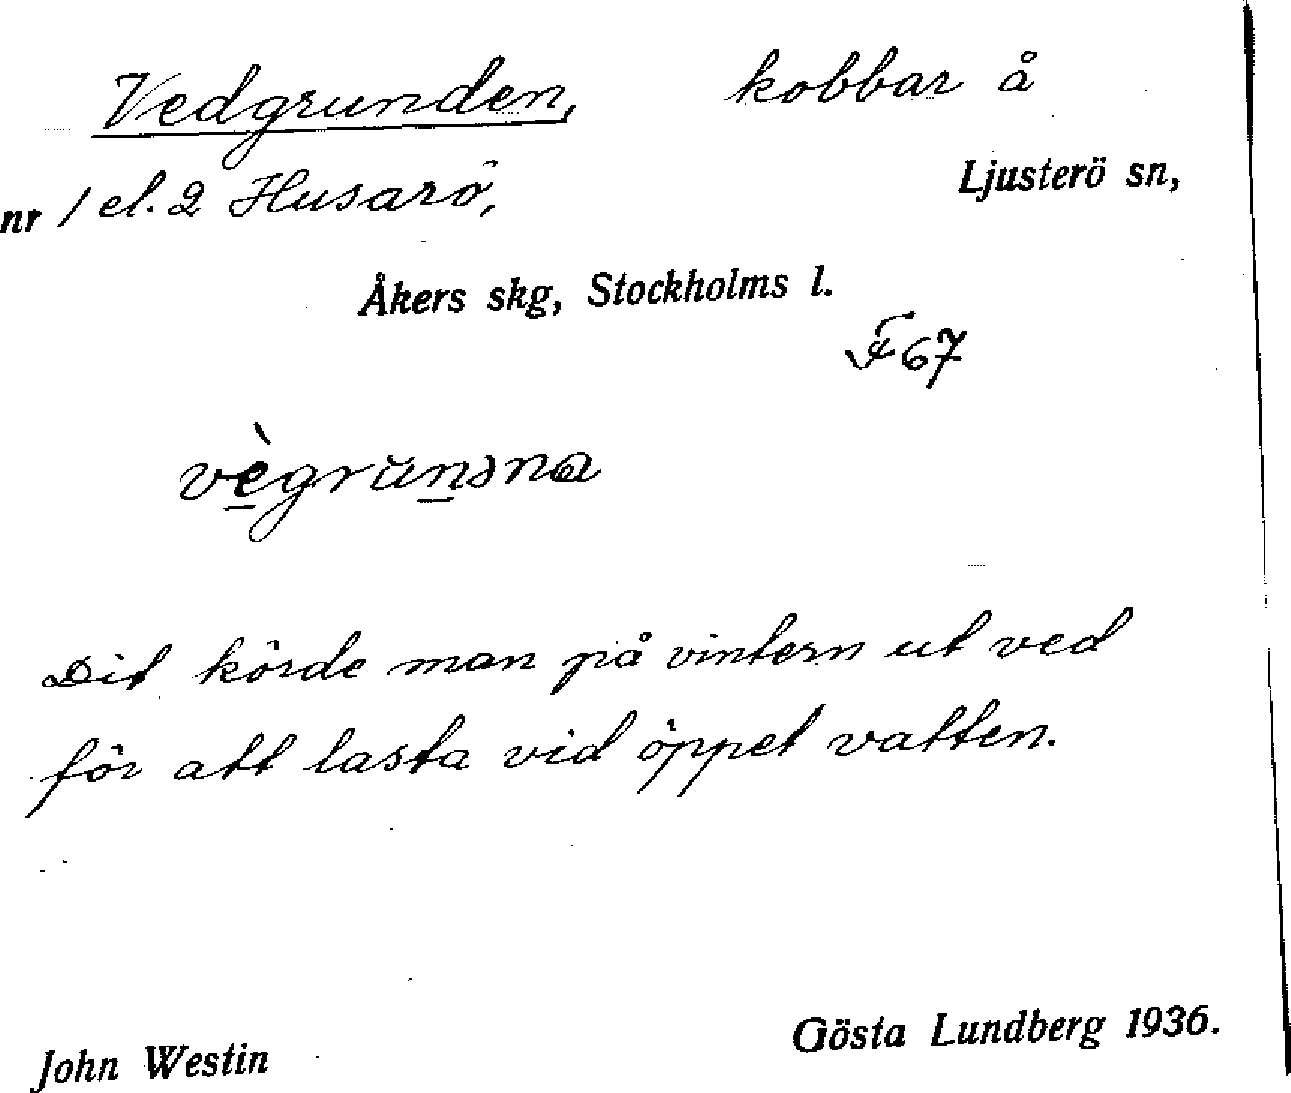 Vedgrunden, kobbar å
nr 1 el. 2 Husarö, Ljusterö sn,
Åkers skg, Stockholms l.
F67
Dit körde man på vintern ut ved
för att lasta vid öppet vatten.
John Westin Gösta Lundberg 1936.